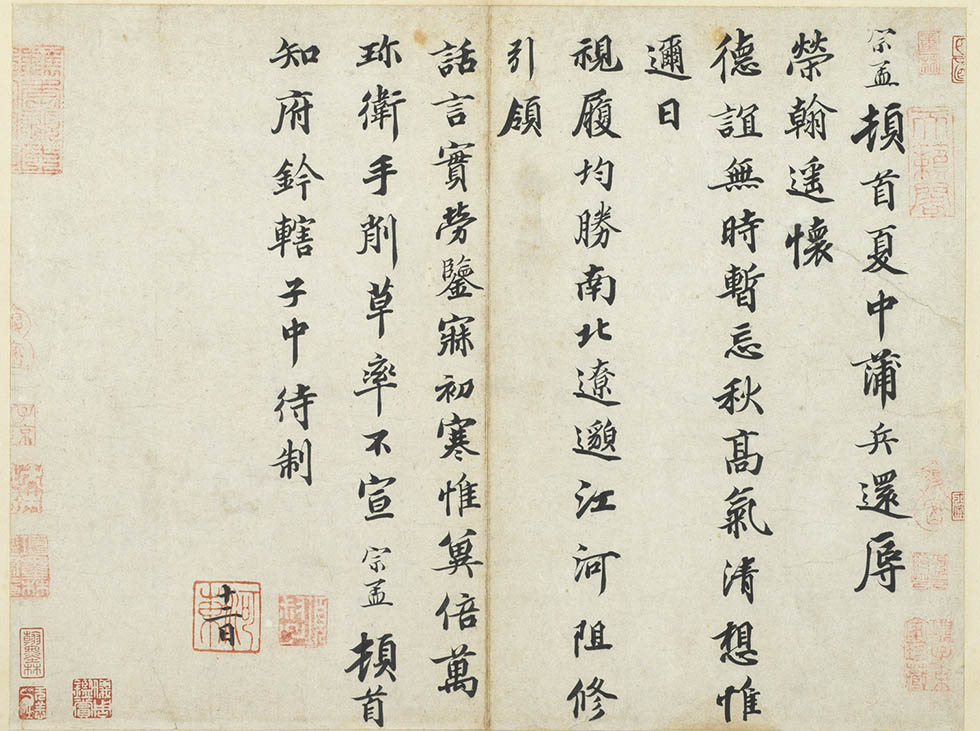 宗孟頓首夏中蒲兵還辱
榮翰遥懷
德誼無時暫忘秋高氣清想惟
邇日
視履均勝南北遼邈江河阻修
引領
話言實勞鑒寐初寒惟冀倍萬
珎衛手削草率不宣宗孟頓首
知府鈐轄子中待制
十二日